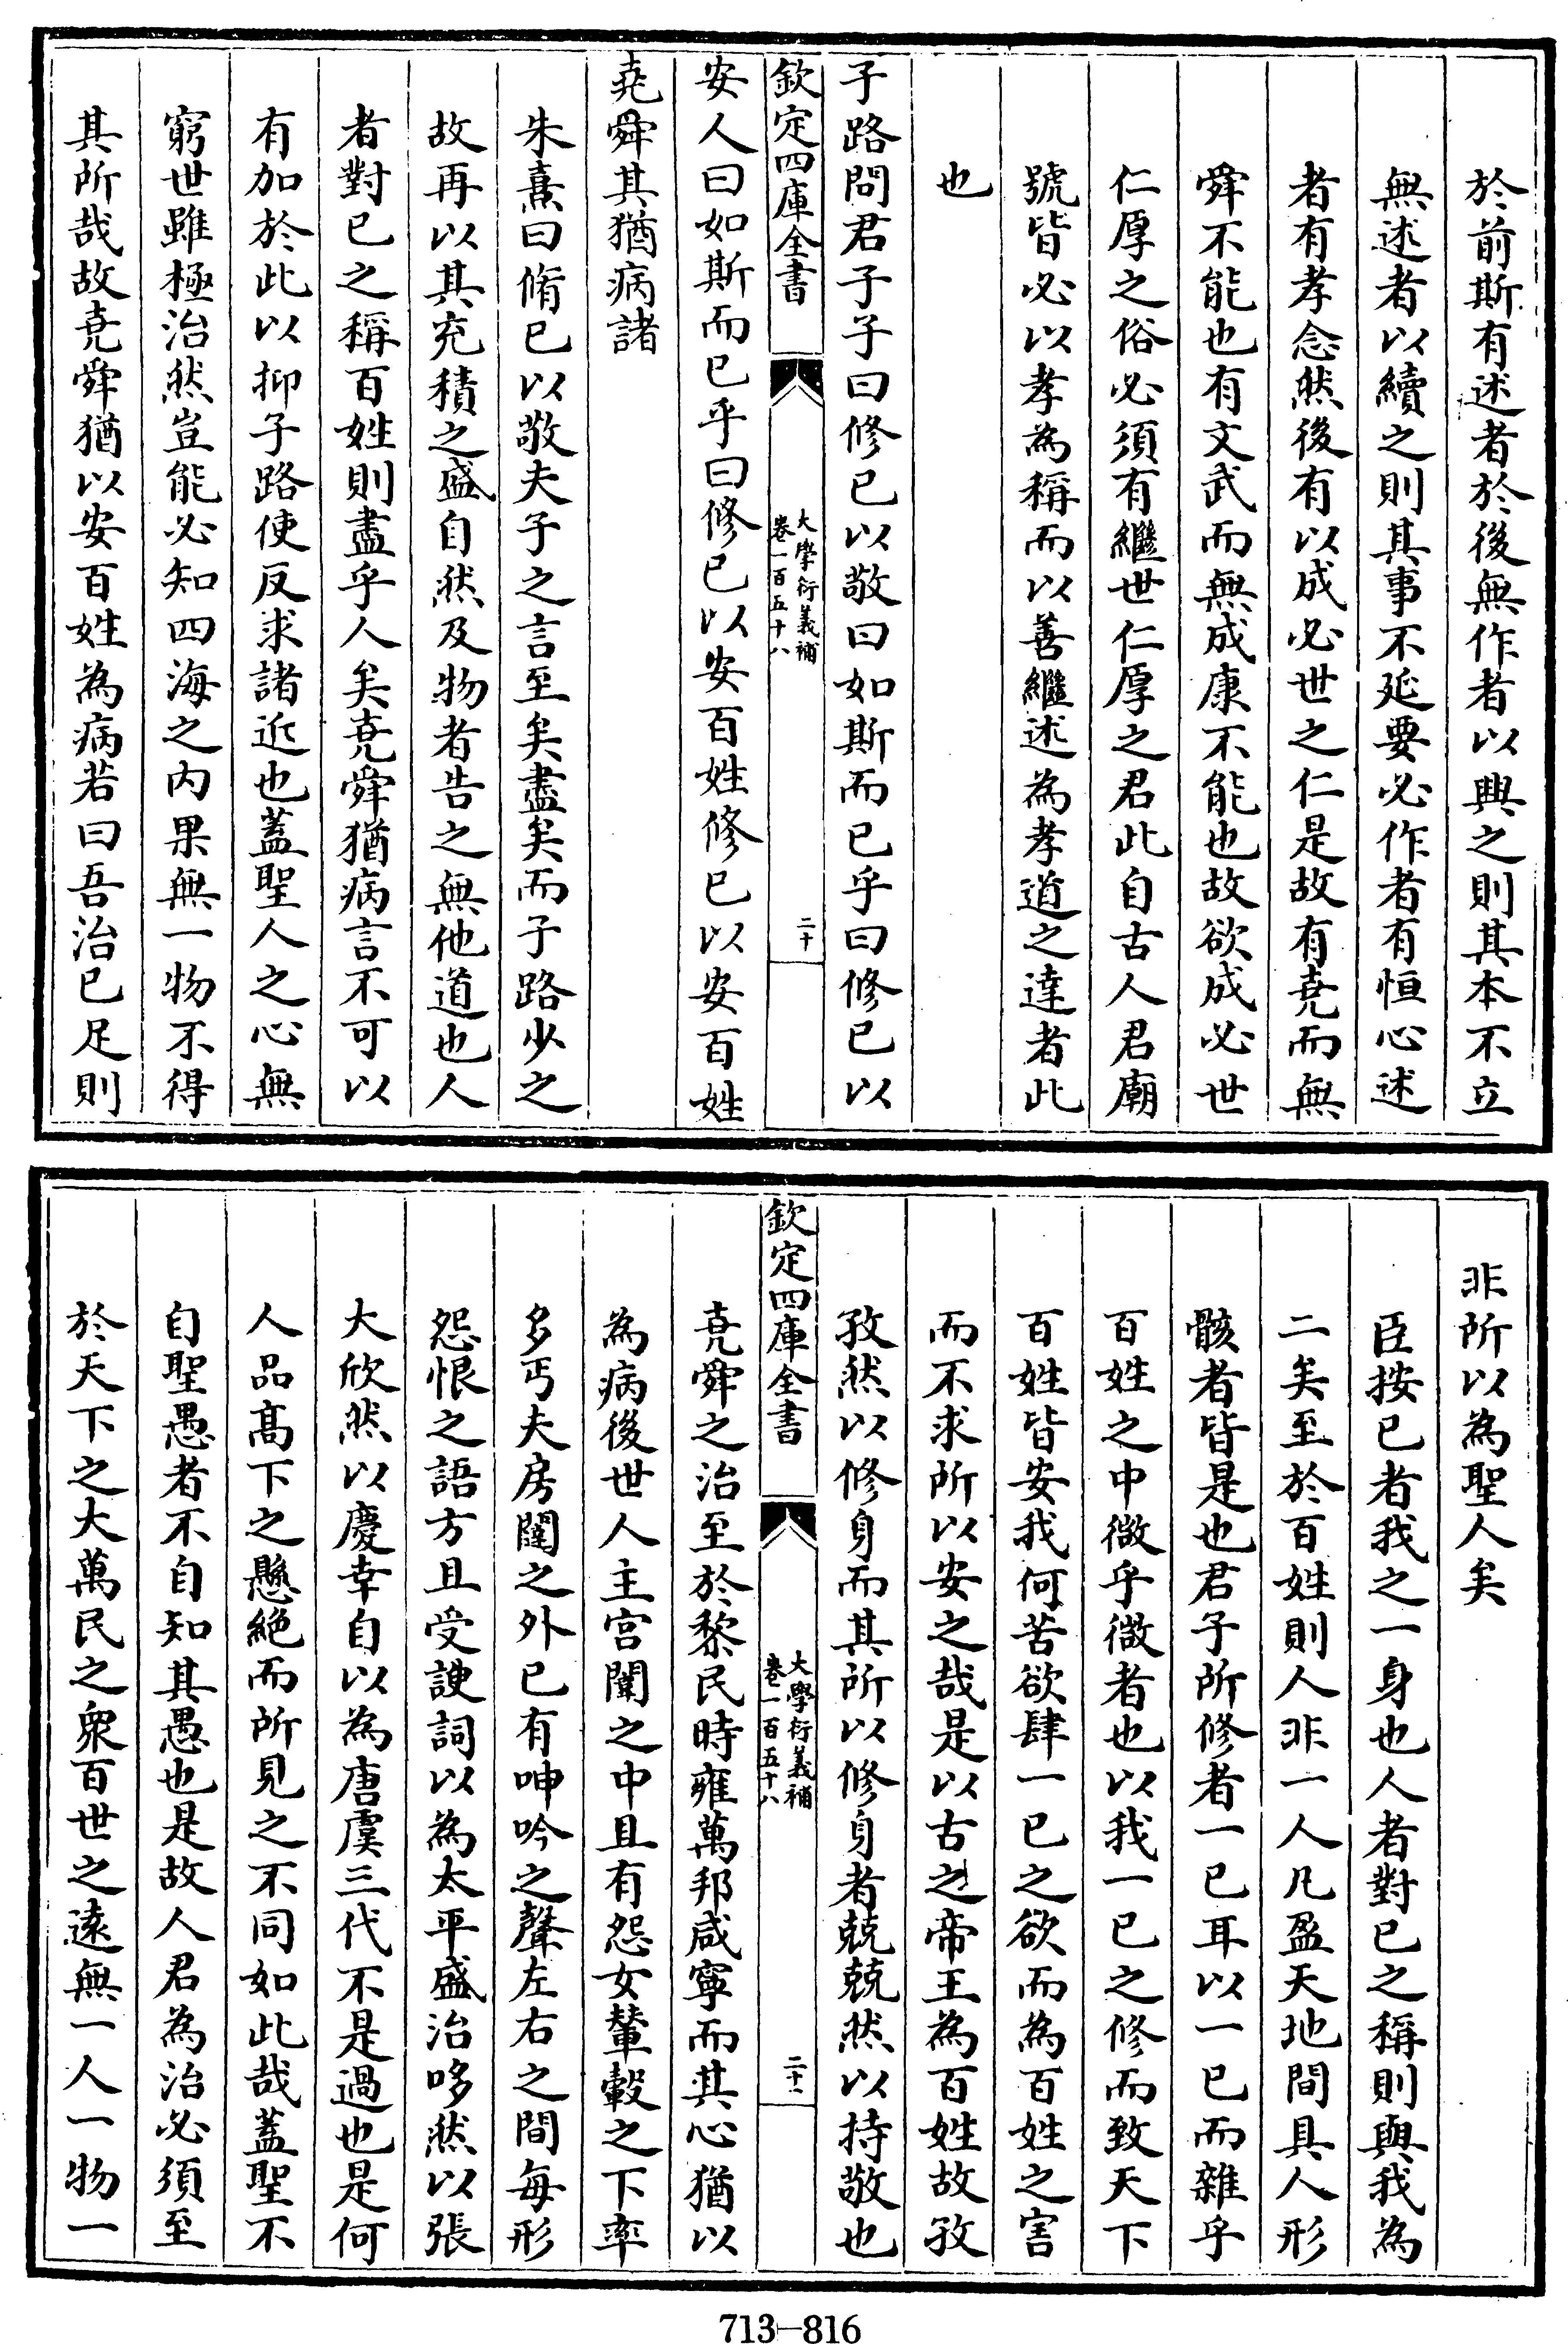 於前斯有述者於後無作者以興之則其本不立
無述者以續之則其事不延要必作者有恒心述
者有孝念然後有以成必世之仁是故有堯而無
舜不能也有文武而無成康不能也故欲成必世
仁厚之俗必須有繼世仁厚之君此自古人君廟
號皆必以孝為稱而以善繼述為孝道之達者此
也
子路問君子子曰修已以敬曰如斯而已乎曰修已以
欽定四庫全書
大學衍義補
卷一百五十八
二十
安人曰如斯而已乎曰修已以安百姓修已以安百姓
堯舜其猶病諸
朱熹曰脩已以敬夫子之言至矣盡矣而子路少之
故再以其充積之盛自然及物者告之無他道也人
者對已之稱百姓則盡乎人矣堯舜猶病言不可以
有加於此以抑子路使反求諸近也蓋聖人之心無
窮世雖極治然豈能必知四海之內果無一物不得
其所哉故堯舜猶以安百姓為病若曰吾治已足則
非所以為聖人矣
臣按已者我之一身也人者對已之稱則與我為
二矣至於百姓則人非一人凡盈天地間具人形
骸者皆是也君子所修者一已耳以一已而雜乎
百姓之中微乎微者也以我一已之修而致天下
百姓皆安我何苦欲肆一已之欲而為百姓之害
而不求所以安之哉是以古之帝王為百姓故孜
孜然以修身而其所以修身者兢兢然以持敬也
欽定四庫全書
大學衍義補
卷一百五十八
二十一
堯舜之治至於黎民時雍萬邦咸寧而其心猶以
為病後世人主宮闈之中且有怨女輦轂之下率
多丐夫房闥之外已有呻吟之聲左右之間每形
怨恨之語方且受諛詞以為太平盛治哆然以張
大欣然以慶幸自以為唐虞三代不是過也是何
人品高下之懸絕而所見之不同如此哉蓋聖不
自聖愚者不自知其愚也是故人君為治必須至
於天下之大萬民之衆百世之遠無一人一物一
713-816